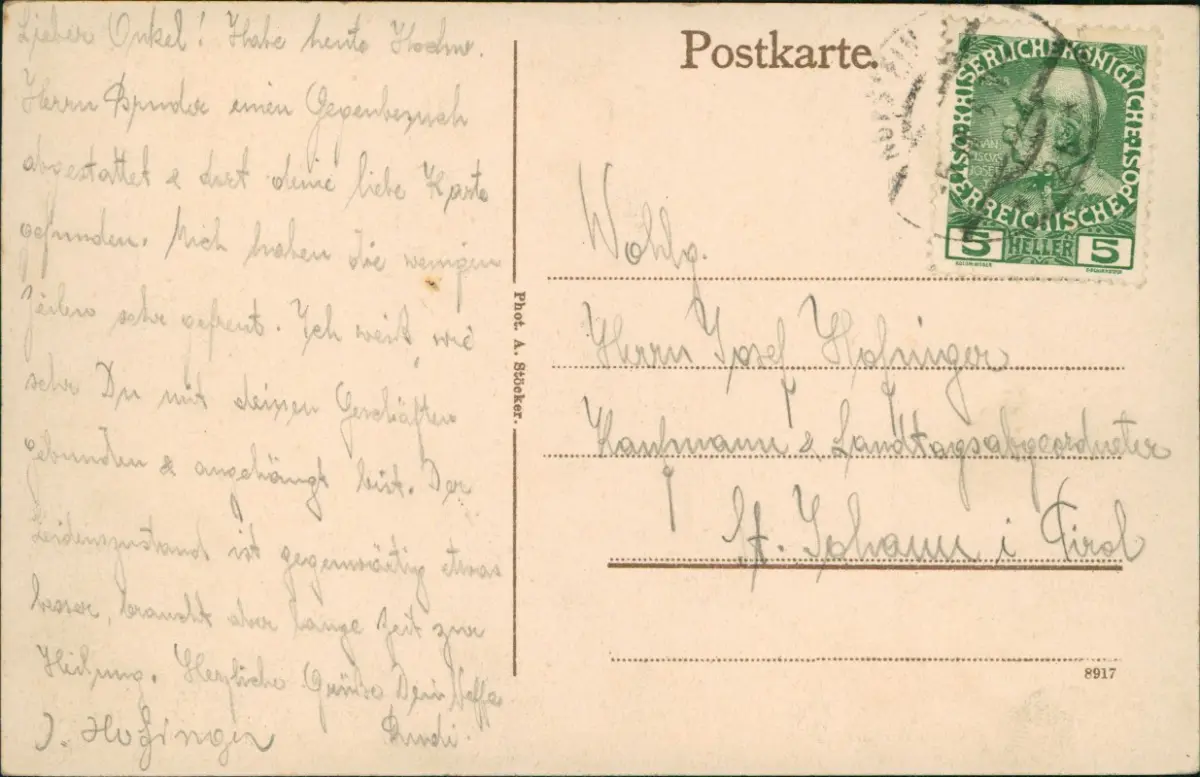 Lieber Onkel! Habe heute Hochw.
Herrn einen Gegenbesuch
abgestattet & dort deine liebe Karte
gefunden. Mich haben die wenigen
Zeilen sehr gefreut. Ich weiß, wie
sehr Du mit deinen Geschäften
gebunden & angehängt bist. Der
Leidenszustand ist gegenwärtig etwas
besser, braucht aber lange Zeit zur
Heilung. Herzliche Grüße Dein Neffe
J. Hofinger Rudi.
Phot. A. Stöcker.
Postkarte.
KAISERLICHE KÖNIGLICHE
ÖSTERREICHISCHE POST
5 HELLER 5
Wohlg.
Herrn Josef Hofinger
Kaufmann & Landtagsabgeordneter
St. Johann i Tirol
8917